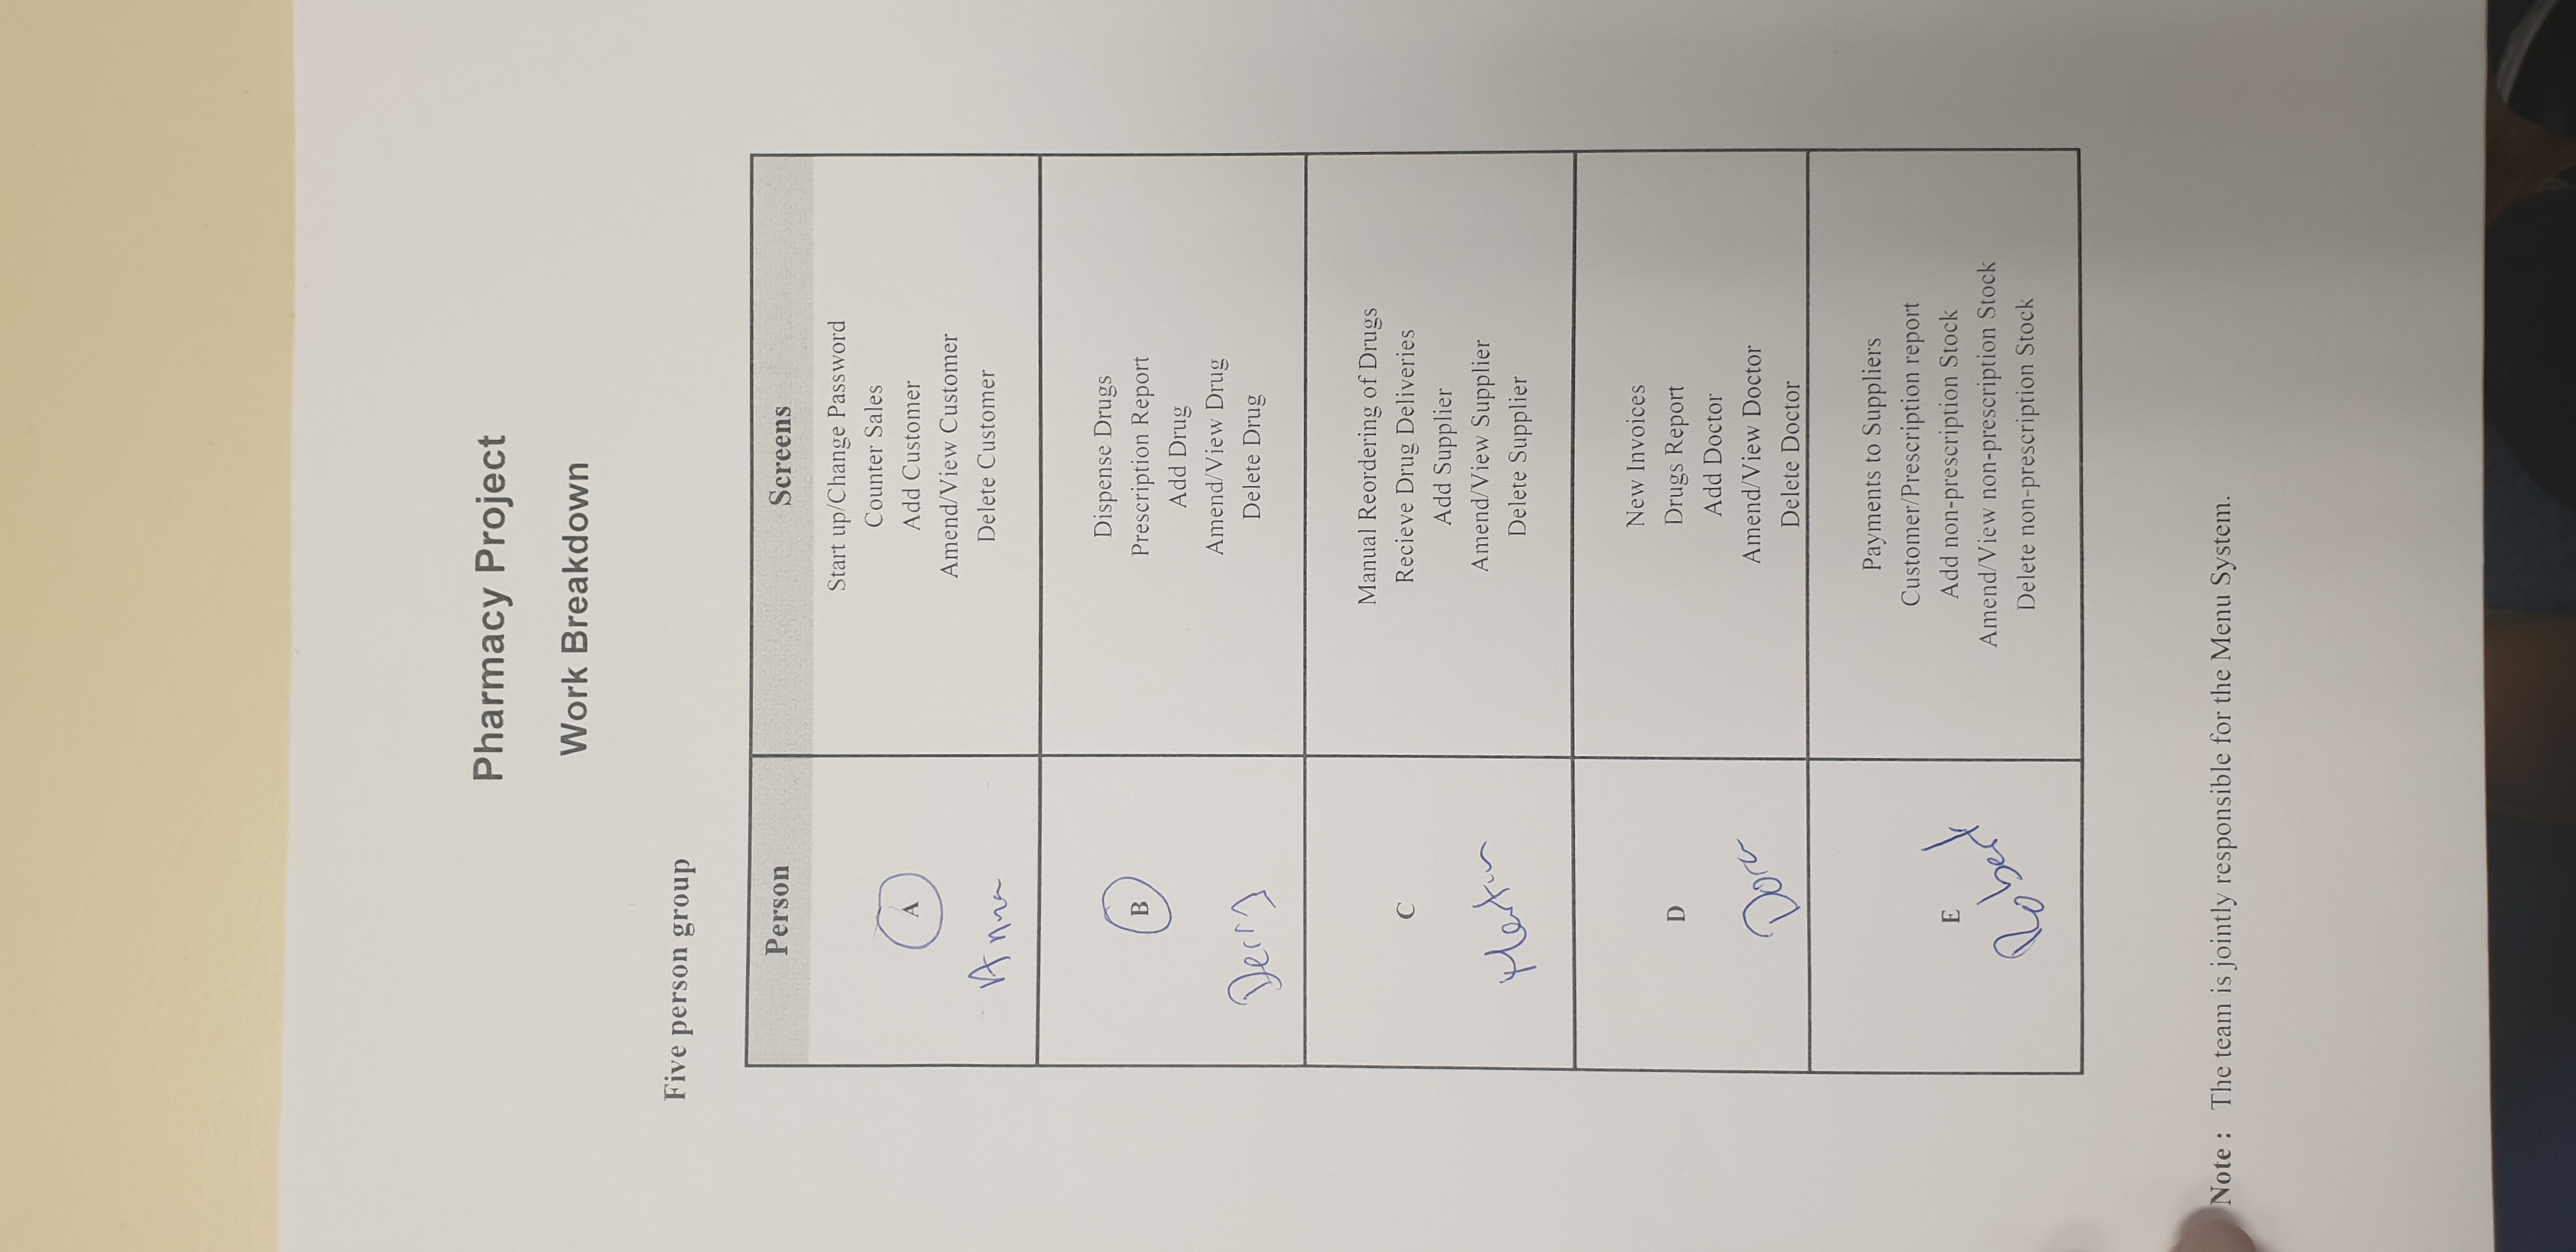 Pharmacy Project
Work Breakdown
Five person group
Person
Screens
A
Anna
Start up/Change Password
Counter Sales
Add Customer
Amend/View Customer
Delete Customer
B
Derry
Dispense Drugs
Prescription Report
Add Drug
Amend/View Drug
Delete Drug
C
Martin
Manual Reordering of Drugs
Recieve Drug Deliveries
Add Supplier
Amend/View Supplier
Delete Supplier
D
Dora
New Invoices
Drugs Report
Add Doctor
Amend/View Doctor
Delete Doctor
E
Robert
Payments to Suppliers
Customer/Prescription report
Add non-prescription Stock
Amend/View non-prescription Stock
Delete non-prescription Stock
Note : The team is jointly responsible for the Menu System.